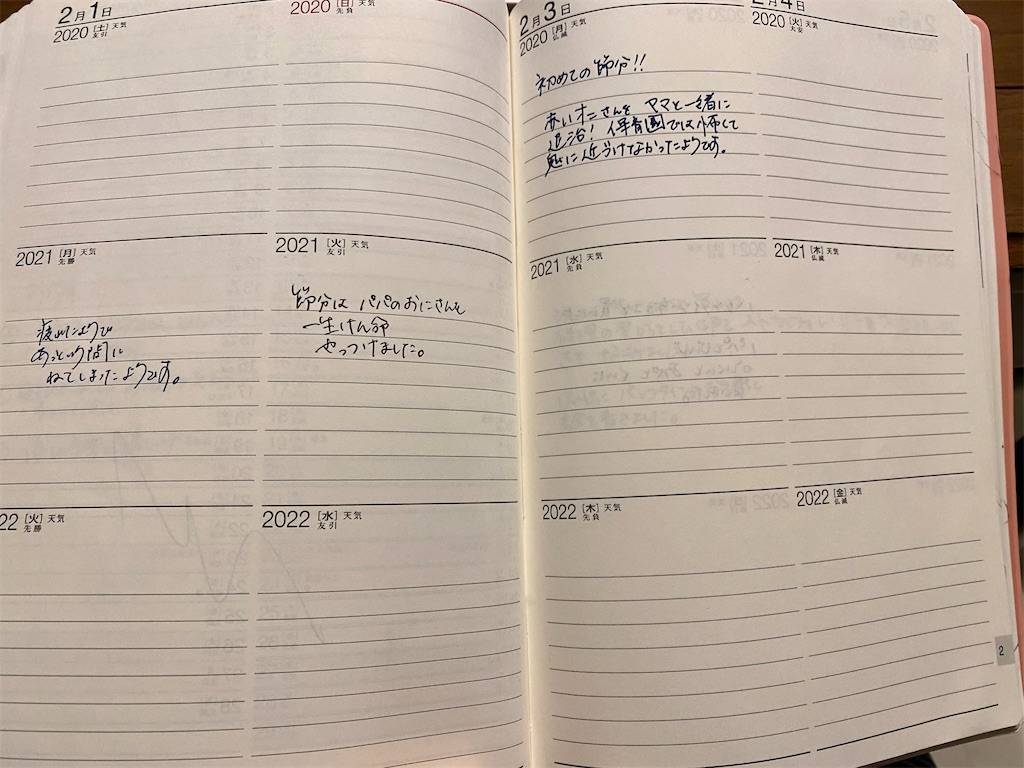 2月1日
2020 [土] 天気
友引
2020 [日] 天気
先負
2021 [月] 天気
先勝
疲れたようで
あっという間に
ねてしまったようです。
2021 [火] 天気
友引
節分は パパのおにさんを
一生けん命
やっつけました。
22 [火] 天気
先勝
2022 [水] 天気
友引
2月3日
2020 [月] 天気
仏滅
初めての節分!!
赤いオニさんを ママと一緒に
退治! 保育園では怖くて
鬼に近づけなかったようです。
2月4日
2020 [火] 天気
大安
2021 [水] 天気
先負
2021 [木] 天気
仏滅
2022 [木] 天気
先負
2022 [金] 天気
仏滅
2